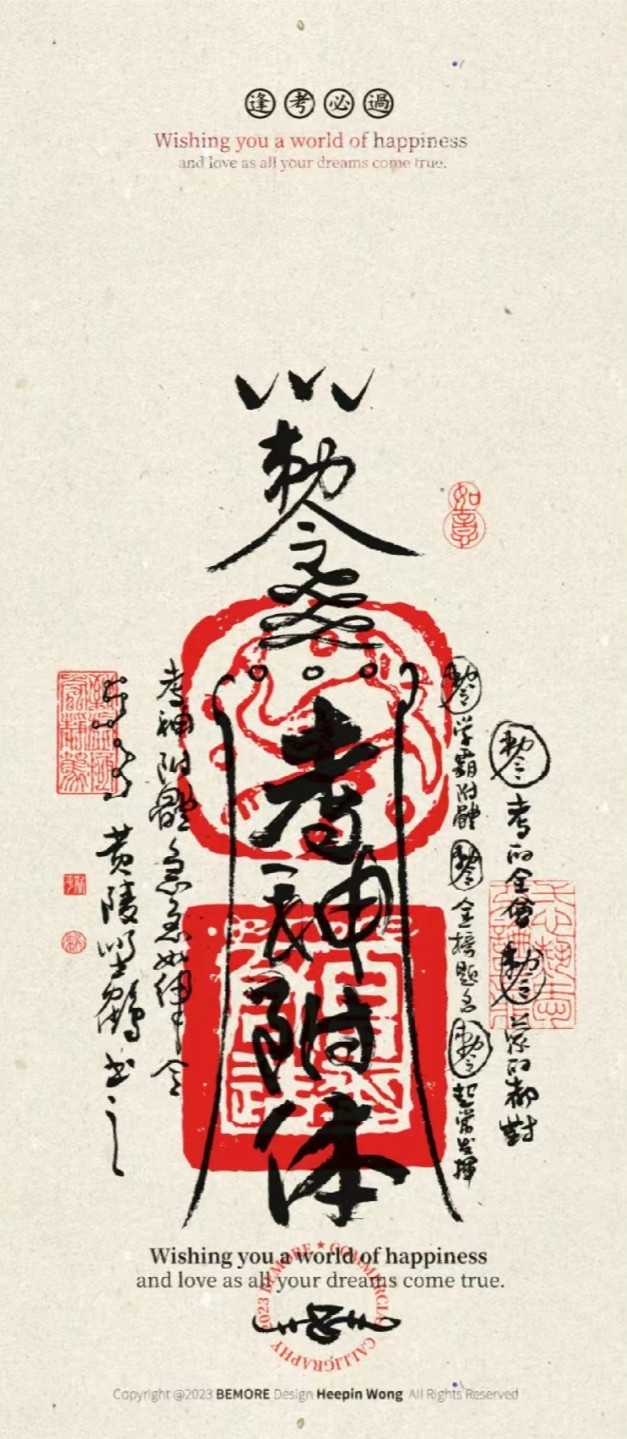 逢考必過
Wishing you a world of happiness
and love as all your dreams come true.
勅令
如意
考神附体
勅令 考的全會 勅令 蒙的都對
勅令 学霸附體 勅令 金榜题名 勅令 超常发揮
考神附體 急急如律令
黄陵野鶴书之
Wishing you a world of happiness
and love as all your dreams come true.
2023 BEMORE ★ COMMERCIAL CALLIGRAPHY
Copyright @2023 BEMORE Design Heepin Wong All Rights Reserved